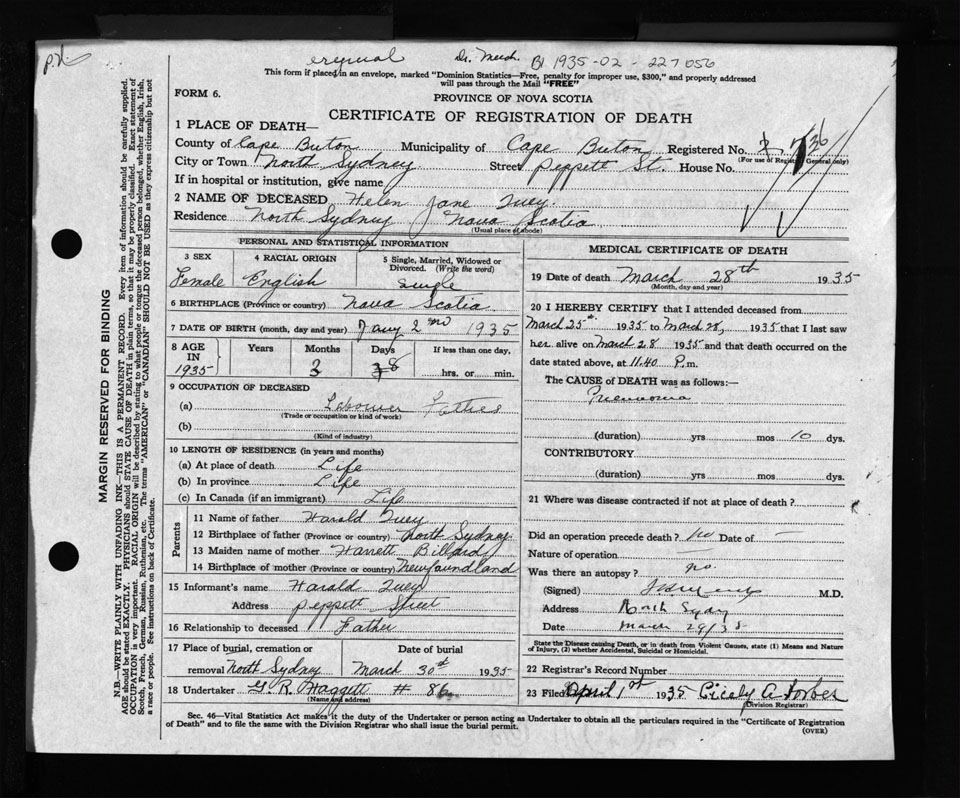 Dr. Meech. B1 1935-02-227056
This form if placed in an envelope, marked "Dominion Statistics—Free, penalty for improper use, $300," and properly addressed
will pass through the Mail "FREE"
FORM 6.
PROVINCE OF NOVA SCOTIA
CERTIFICATE OF REGISTRATION OF DEATH
1 PLACE OF DEATH—
County of Cape Breton Municipality of Cape Breton Registered No.
(For use of Registrar General only)
City or Town North Sydney Street Peppett St. House No.
If in hospital or institution, give name
2 NAME OF DECEASED Helen Jane Tuey.
Residence North Sydney Nova Scotia
(Usual place of abode)
PERSONAL AND STATISTICAL INFORMATION
3 SEX 4 RACIAL ORIGIN 5 Single, Married, Widowed or
Divorced. (Write the word)
Female English single
6 BIRTHPLACE (Province or country) Nova Scotia
7 DATE OF BIRTH (month, day and year) Jany 2nd 1935
8 AGE IN Years Months Days If less than one day,
1935 3 hrs. or min.
9 OCCUPATION OF DECEASED
(a) Labourer Father
(Trade or occupation or kind of work)
(b)
(Kind of industry)
10 LENGTH OF RESIDENCE (in years and months)
(a) At place of death Life
(b) In province Life
(c) In Canada (if an immigrant) Life
Parents
11 Name of father Harald Tuey
12 Birthplace of father (Province or country) North Sydney
13 Maiden name of mother Harrett Billard
14 Birthplace of mother (Province or country) Newfoundland
15 Informant's name Harald Tuey
Address Peppett Street
16 Relationship to deceased Father
17 Place of burial, cremation or Date of burial
removal North Sydney March 30th 1935
18 Undertaker G. R. Haggett # 86
(Name and address)
MEDICAL CERTIFICATE OF DEATH
19 Date of death March 28th 1935
(Month, day and year)
20 I HEREBY CERTIFY that I attended deceased from
March 25th 1935 to March 28, 1935 that I last saw
her alive on March 28 1935 and that death occurred on the
date stated above, at 11.40 P.m.
The CAUSE of DEATH was as follows:—
Pneumonia
(duration) yrs mos 10 dys.
CONTRIBUTORY
(duration) yrs mos dys.
21 Where was disease contracted if not at place of death?
Did an operation precede death? no Date of —
Nature of operation —
Was there an autopsy? no.
(Signed) M.D.
Address North Sydney
Date March 29/35
State the Disease causing Death, or in death from Violent Causes, state (1) Means and Nature
of Injury, (2) whether Accidental, Suicidal or Homicidal.
22 Registrar's Record Number
23 Filed April 1st 1935 Cicely A Forbes
(Division Registrar)
Sec. 46—Vital Statistics Act makes it the duty of the Undertaker or person acting as Undertaker to obtain all the particulars required in the "Certificate of Registration
of Death" and to file the same with the Division Registrar who shall issue the burial permit.
(OVER)
MARGIN RESERVED FOR BINDING
N.B.—WRITE PLAINLY WITH UNFADING INK—THIS IS A PERMANENT RECORD. Every item of information should be carefully supplied.
AGE should be stated EXACTLY. PHYSICIANS should STATE CAUSE OF DEATH in plain terms, so that it may be properly classified. Exact statement of
OCCUPATION is very important. RACIAL ORIGIN will be described by stating to what people or tongue the deceased person belonged, whether English, Irish,
Scotch, French, German, Russian, Ruthenian, etc. The terms "AMERICAN" or "CANADIAN" SHOULD NOT BE USED as they express citizenship but not
a race or people. See instructions on back of Certificate.